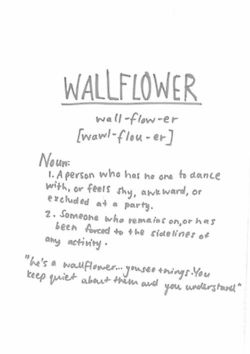 WALLFLOWER
wall-flow-er
[wawl-flou-er]
Noun:
1. A person who has no one to dance
with, or feels shy, awkward, or
excluded at a party.
2. Someone who remains on, or has
been forced to the sidelines of
any activity.
"he's a wallflower... you see things. You
keep quiet about them and you understand"